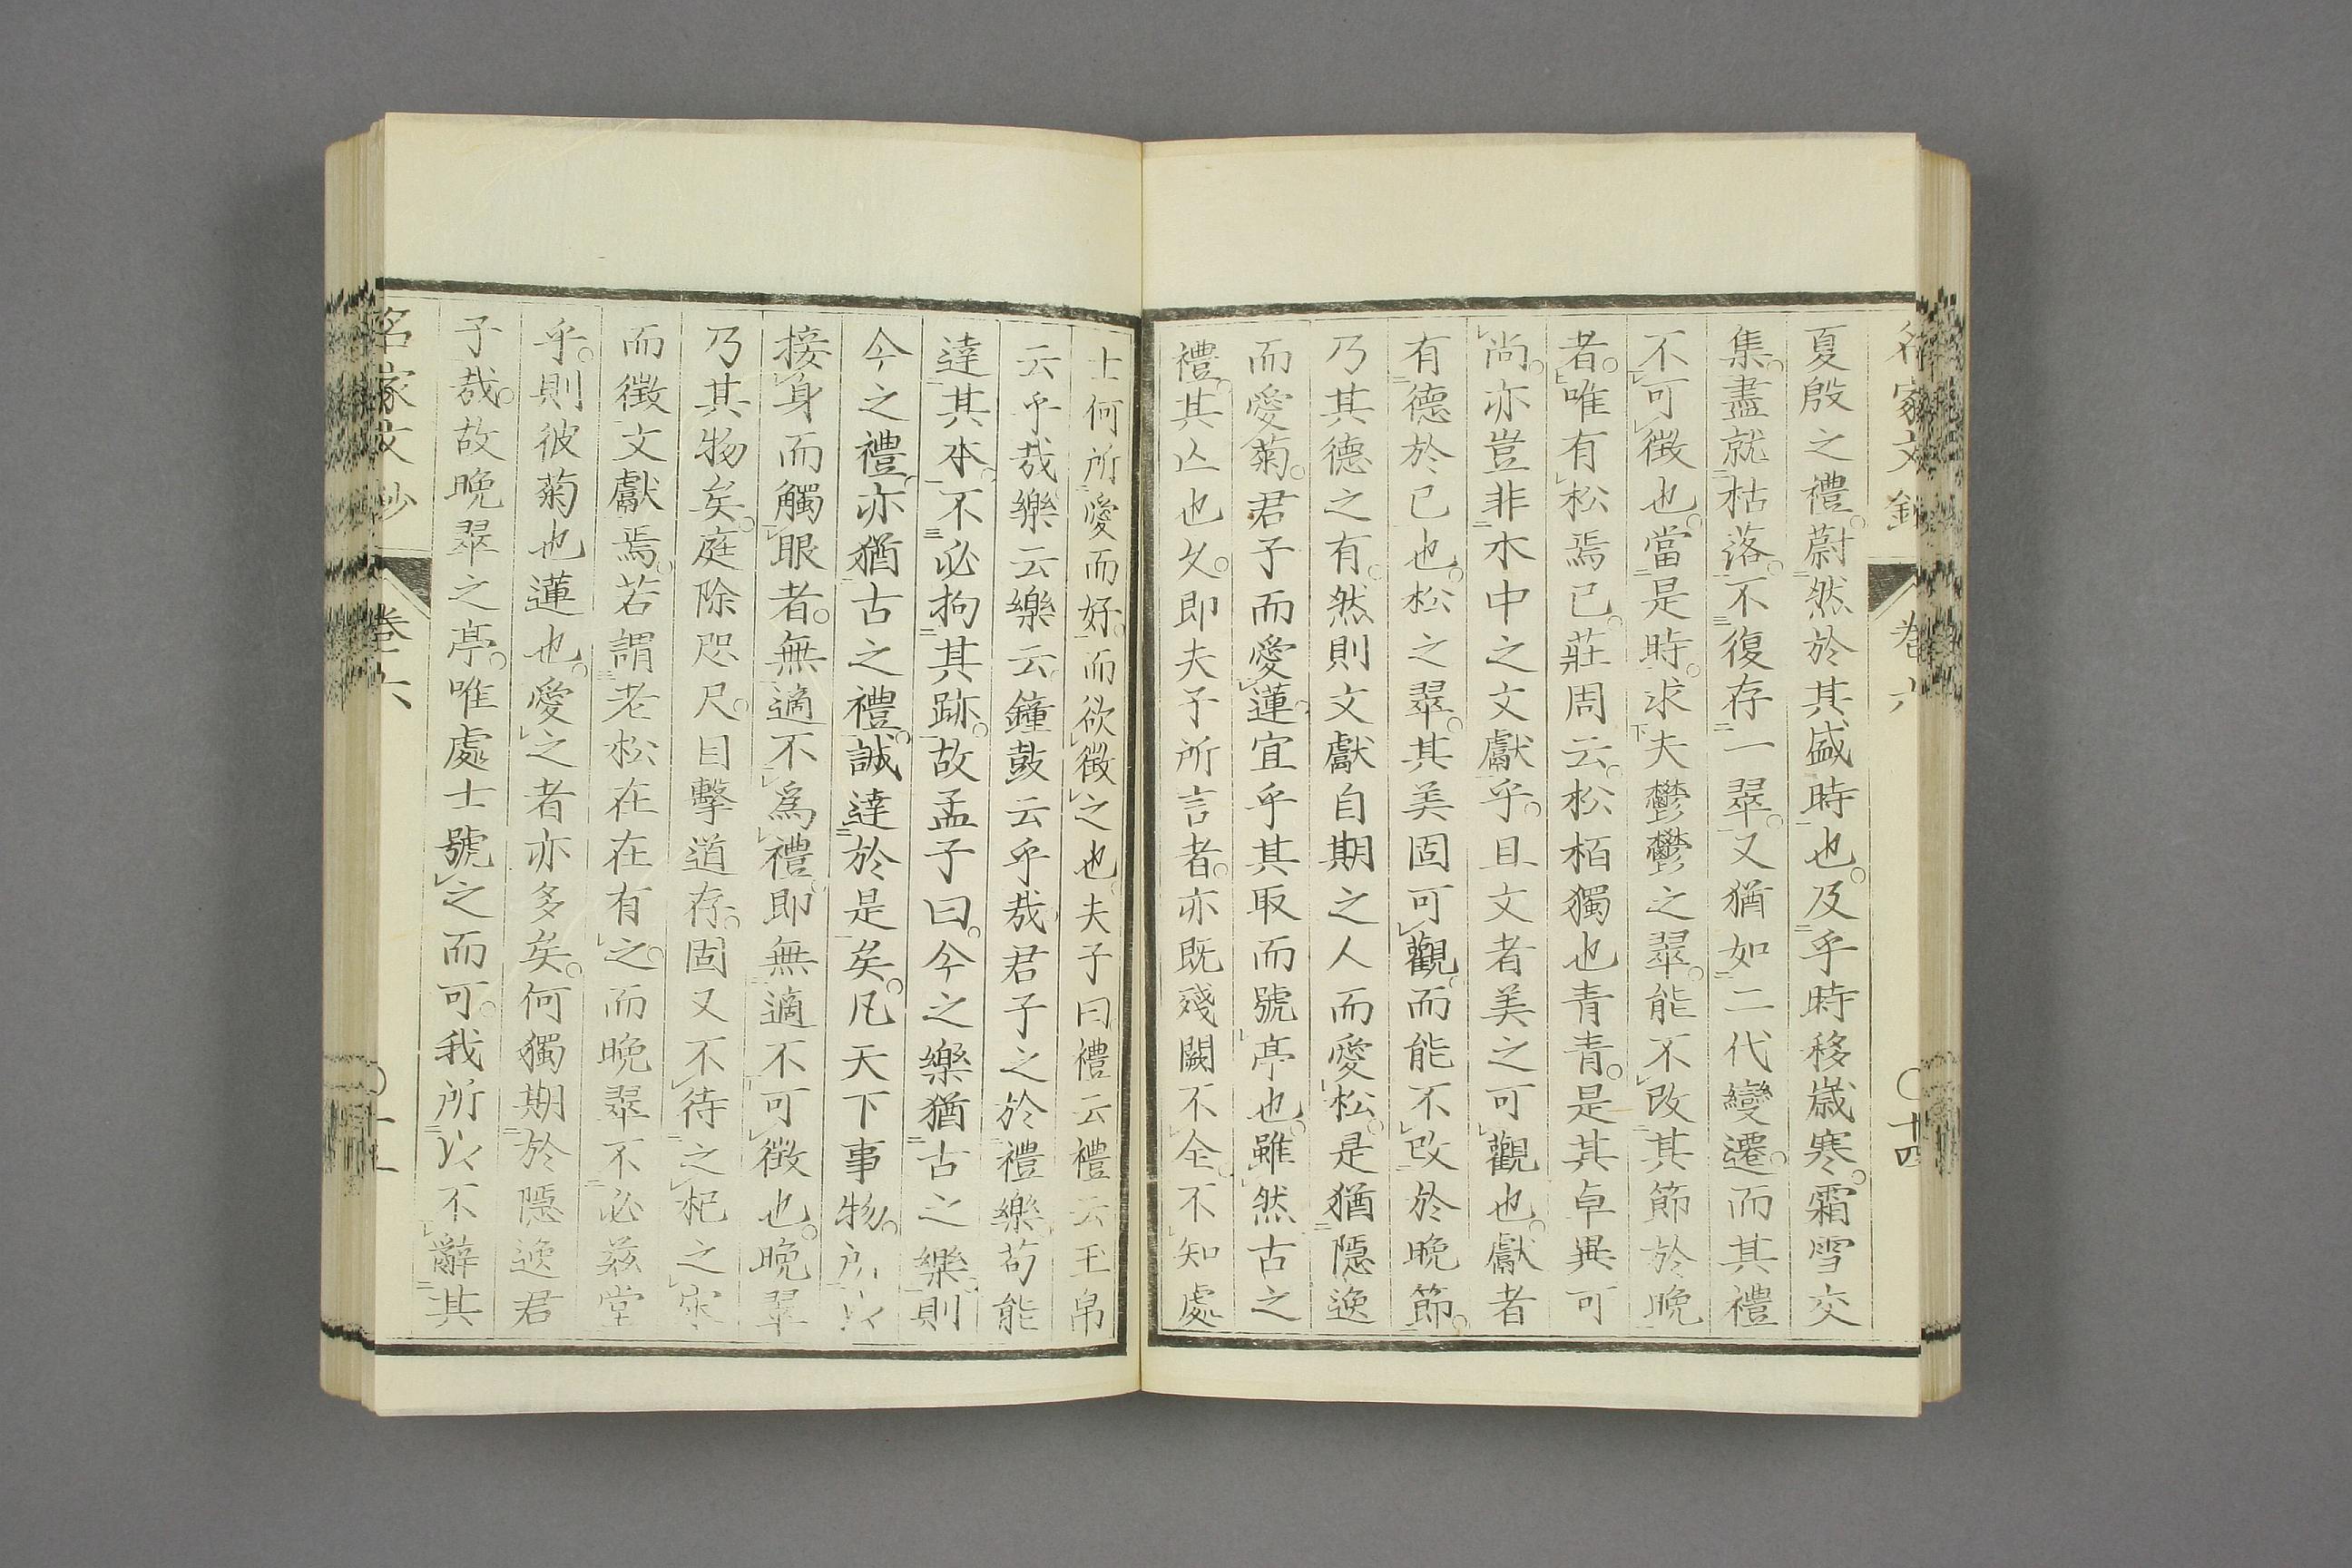 名家文鈔 卷六 〇十四
夏殷之禮。蔚然於其盛時也。及乎時移歲寒。霜雪交
集。盡就枯落。不復存一翠。又猶如二代變遷。而其禮
不可徵也。當是時。求夫鬱鬱之翠。能不改其節於晚
者。唯有松焉已。莊周云。松栢獨也青青。是其卓異可
尚。亦豈非木中之文獻乎。且文者美之可觀也。獻者
有德於己也。松之翠。其美固可觀。而能不改於晚節。
乃其德之有。然則文獻自期之人而愛松。是猶隱逸
而愛菊。君子而愛蓮。宜乎其取而號亭也。雖然古之
禮。其亾也久。即夫子所言者。亦既殘闕不全。不知處
士何所愛而好。而欲徵之也。夫子曰禮云禮云玉帛
云乎哉樂云樂云。鐘鼓云乎哉。君子之於禮樂。苟能
達其本。不必拘其跡。故孟子曰。今之樂猶古之樂。則
今之禮。亦猶古之禮。誠達於是矣。凡天下事物。所以
接身而觸眼者。無適不爲禮。即無適不可徵也。晚翠
乃其物矣。庭除咫尺。目擊道存。固又不待之杞之宋
而徵文獻焉。若謂老松在在有之。而晚翠不必茲堂
乎。則彼菊也蓮也。愛之者亦多矣。何獨期於隱逸君
子哉。故晚翠之亭。唯處士號之而可。我所以不辭其
名家文鈔 卷六